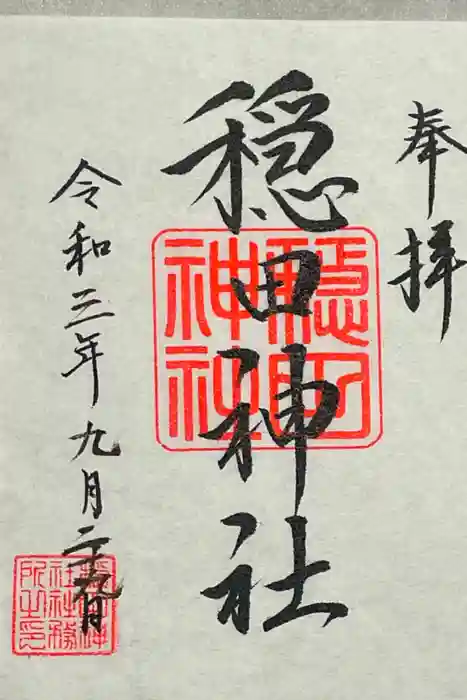 奉拝
穏田神社
穏田
神社
令和三年九月二十九日
穏田神
社社務
所之印